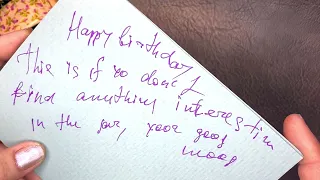 Happy birthday,
this is if so don't
find anything interestin
in the par, your good
mood